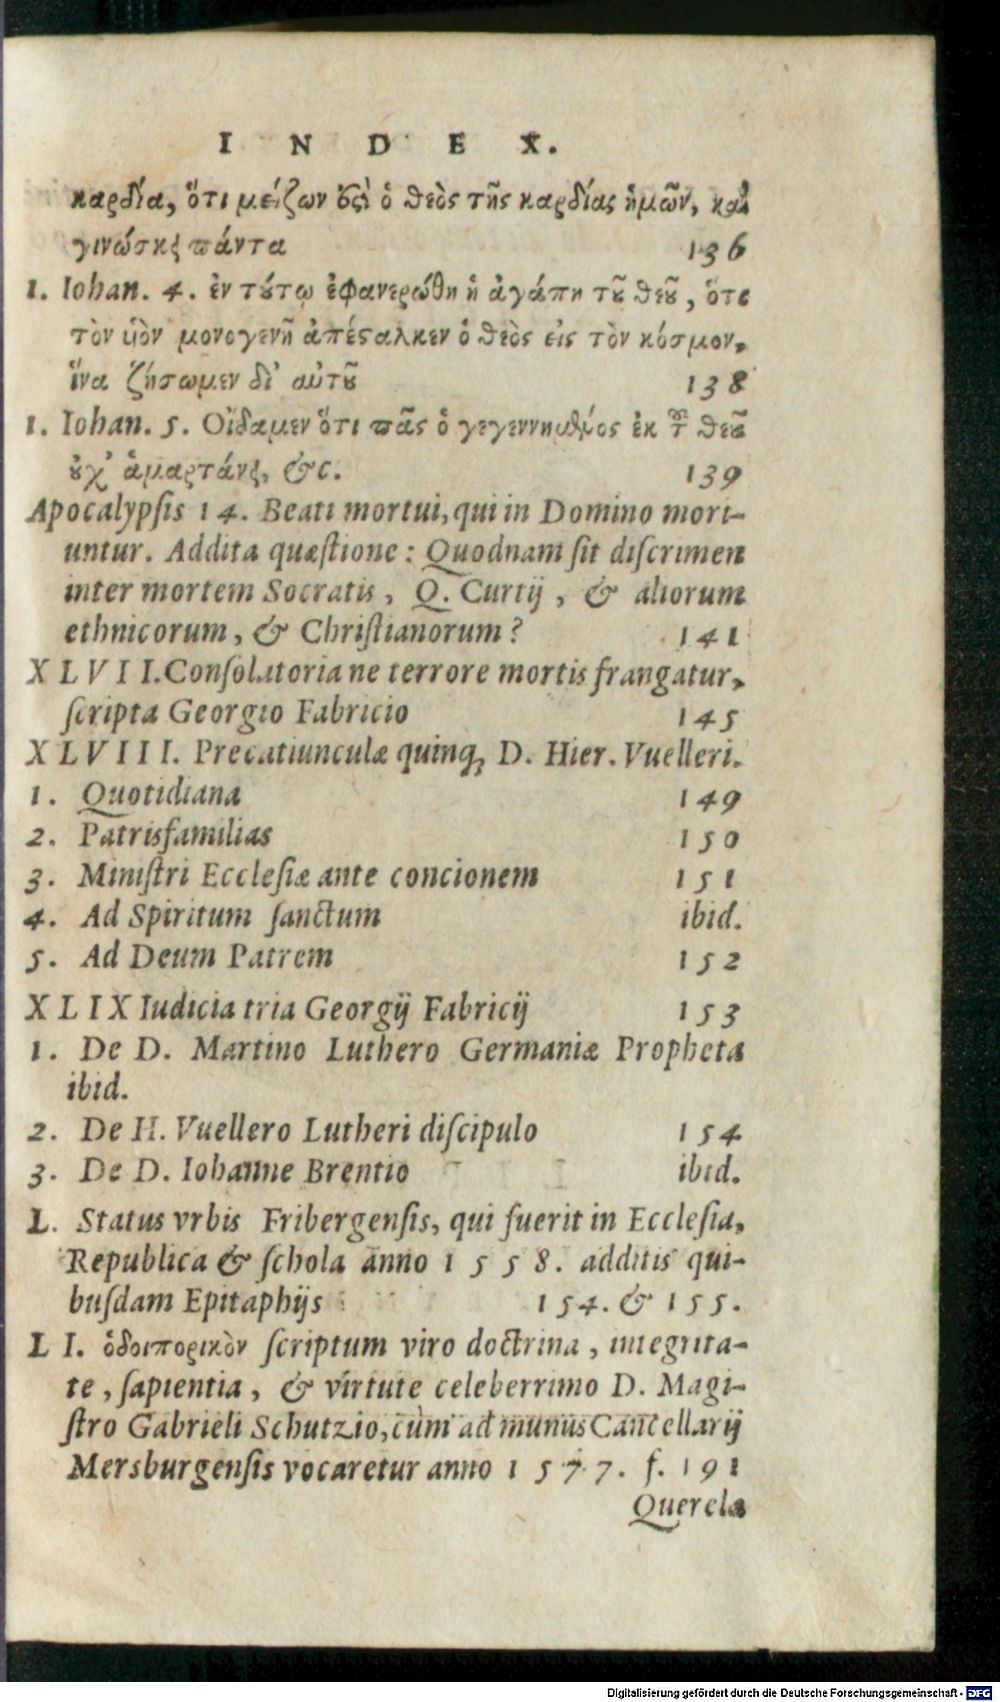 I N D E X.
καρδία, ὅτι μείζων ἐϛὶ ὁ θεὸς τῆς καρδίας ἡμῶν, καὶ
γινώσκει πάντα 136
1. Iohan. 4. ἐν τούτῳ ἐφανερώθη ἡ ἀγάπη τοῦ θεοῦ, ὅτι
τὸν υἱὸν μονογενῆ ἀπέϛαλκεν ὁ θεὸς εἰς τὸν κόσμον,
ἵνα ζήσωμεν δι' αὐτοῦ 138
1. Iohan. 5. Οἴδαμεν ὅτι πᾶς ὁ γεγεννημένος ἐκ τοῦ θεοῦ
οὐχ' ἁμαρτάνει, &c. 139
Apocalypſis 14. Beati mortui, qui in Domino mori-
untur. Addita quæſtione: Quodnam ſit diſcrimen
inter mortem Socratis, Q. Curtij, & aliorum
ethnicorum, & Chriſtianorum? 141
X L V I I. Conſolatoria ne terrore mortis frangatur,
ſcripta Georgio Fabricio 145
X L V I I I. Precatiunculæ quinq; D. Hier. Vuelleri.
1. Quotidiana 149
2. Patrisfamilias 150
3. Miniſtri Eccleſiæ ante concionem 151
4. Ad Spiritum ſanctum ibid.
5. Ad Deum Patrem 152
X L I X Iudicia tria Georgij Fabricij 153
1. De D. Martino Luthero Germaniæ Propheta
ibid.
2. De H. Vuellero Lutheri diſcipulo 154
3. De D. Iohanne Brentio ibid.
L. Status vrbis Fribergenſis, qui fuerit in Eccleſia,
Republica & ſchola anno 1558. additis qui-
buſdam Epitaphijs 154. & 155.
L I. ὁδοιπορικὸν ſcriptum viro doctrina, integrita-
te, ſapientia, & virtute celeberrimo D. Magi-
ſtro Gabrieli Schutzio, cùm ad munus Cancellarij
Mersburgenſis vocaretur anno 1577. f. 191
Querela
Digitalisierung gefördert durch die Deutsche Forschungsgemeinschaft - DFG